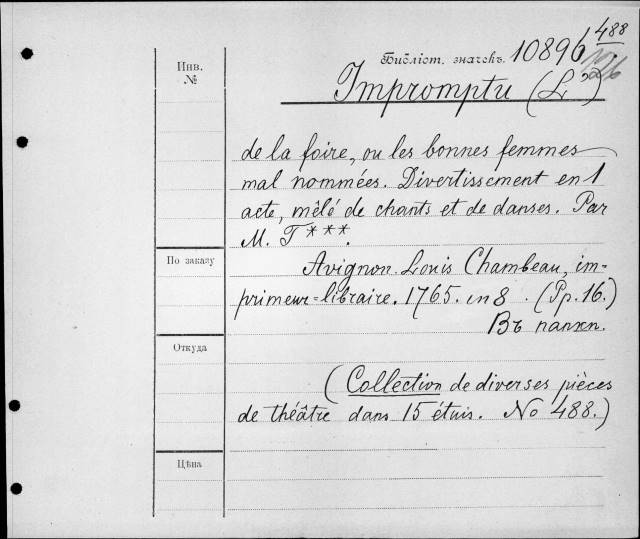 Библіот. значекъ. 10896/488
Инв.
№
Impromptu (L')
de la foire, ou les bonnes femmes
mal nommées. Divertissement en 1
acte, mêlé de chants et de danses. Par
M. T***.
По заказу
Avignon. Louis Chambeau, im-
primeur-libraire. 1765. in 8. (Pp. 16.)
Въ папкѣ.
Откуда
(Collection de diverses pièces
de théâtre dans 15 étuis. No 488.)
Цѣна